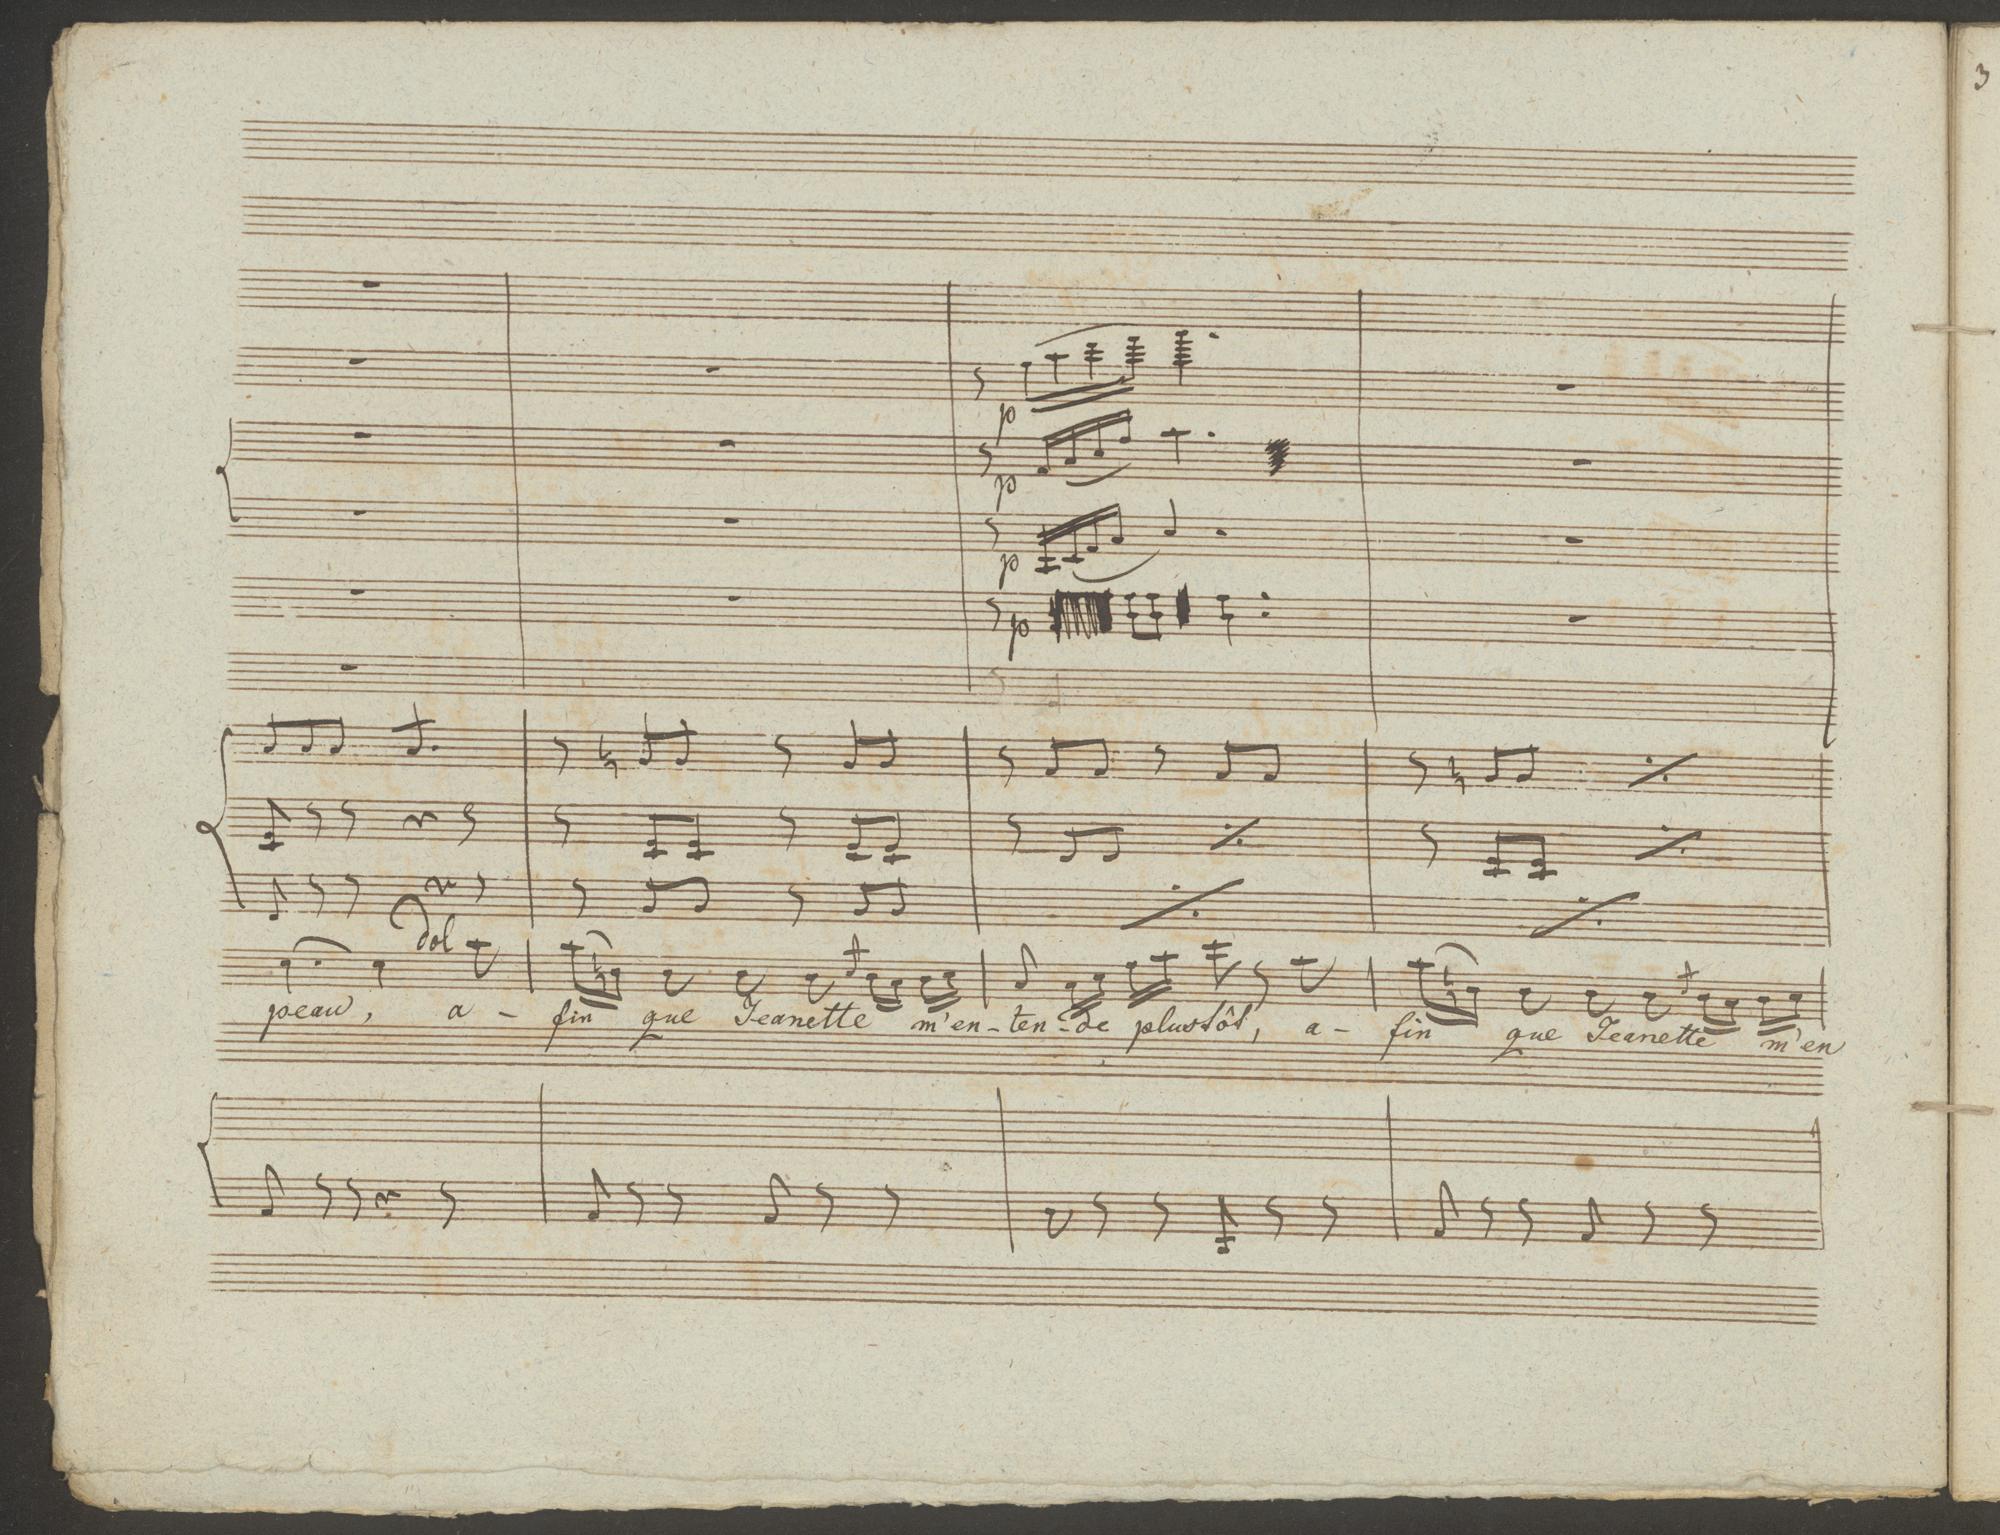 3
p
p
p
p
dol
peau, a - fin que Jeanette m'en-ten-de plustôt, a - fin que Jeanette m'en